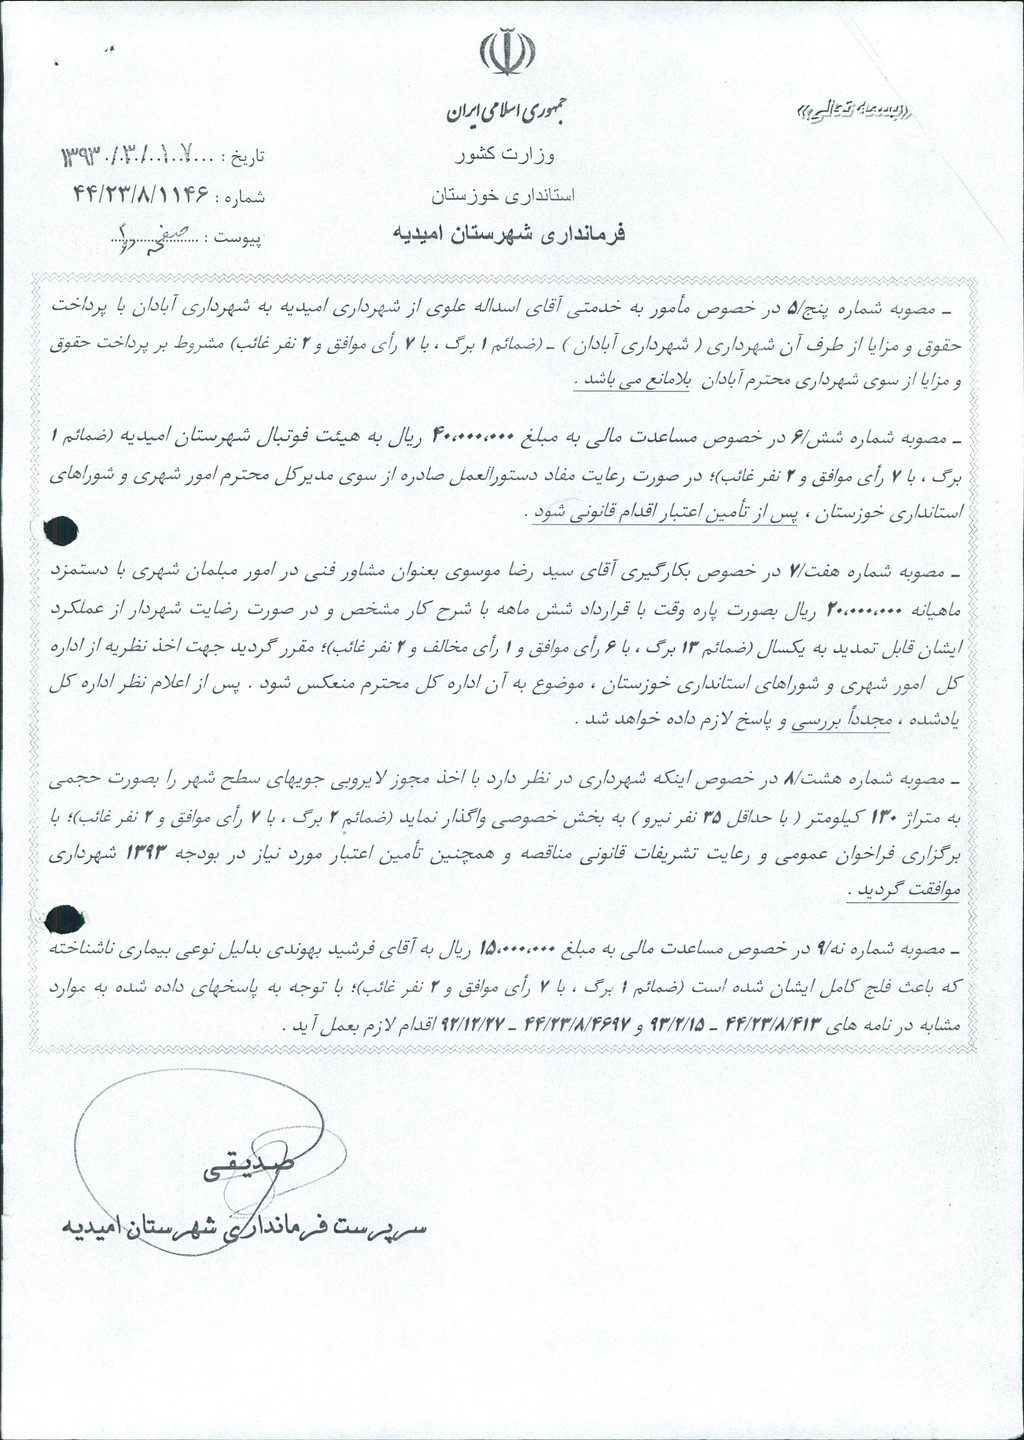 «بسمه تعالی»
جمهوری اسلامی ایران
وزارت کشور
استانداری خوزستان
فرمانداری شهرستان امیدیه
تاریخ : ۱۳۹۳/۰۳/۰۷
شماره : ۴۴/۲۳/۸/۱۱۴۶
پیوست : صفحه دوم
ـ مصوبه شماره پنج/۵ در خصوص مأمور به خدمتی آقای اسداله علوی از شهرداری امیدیه به شهرداری آبادان با پرداخت
حقوق و مزایا از طرف آن شهرداری ( شهرداری آبادان ) ـ (ضمائم ۱ برگ ، با ۷ رأی موافق و ۲ نفر غائب) مشروط بر پرداخت حقوق
و مزایا از سوی شهرداری محترم آبادان بلامانع می باشد .
ـ مصوبه شماره شش/۶ در خصوص مساعدت مالی به مبلغ ۴۰،۰۰۰،۰۰۰ ریال به هیئت فوتبال شهرستان امیدیه (ضمائم ۱
برگ ، با ۷ رأی موافق و ۲ نفر غائب)؛ در صورت رعایت مفاد دستورالعمل صادره از سوی مدیرکل محترم امور شهری و شوراهای
استانداری خوزستان ، پس از تأمین اعتبار اقدام قانونی شود .
ـ مصوبه شماره هفت/۷ در خصوص بکارگیری آقای سید رضا موسوی بعنوان مشاور فنی در امور مبلمان شهری با دستمزد
ماهیانه ۲۰،۰۰۰،۰۰۰ ریال بصورت پاره وقت با قرارداد شش ماهه با شرح کار مشخص و در صورت رضایت شهردار از عملکرد
ایشان قابل تمدید به یکسال (ضمائم ۱۳ برگ ، با ۶ رأی موافق و ۱ رأی مخالف و ۲ نفر غائب)؛ مقرر گردید جهت اخذ نظریه از اداره
کل امور شهری و شوراهای استانداری خوزستان ، موضوع به آن اداره کل محترم منعکس شود . پس از اعلام نظر اداره کل
یادشده ، مجدداً بررسی و پاسخ لازم داده خواهد شد .
ـ مصوبه شماره هشت/۸ در خصوص اینکه شهرداری در نظر دارد با اخذ مجوز لایروبی جویهای سطح شهر را بصورت حجمی
به متراژ ۱۳۰ کیلومتر ( با حداقل ۳۵ نفر نیرو ) به بخش خصوصی واگذار نماید (ضمائم ۲ برگ ، با ۷ رأی موافق و ۲ نفر غائب)؛ با
برگزاری فراخوان عمومی و رعایت تشریفات قانونی مناقصه و همچنین تأمین اعتبار مورد نیاز در بودجه ۱۳۹۳ شهرداری
موافقت گردید .
ـ مصوبه شماره نه/۹ در خصوص مساعدت مالی به مبلغ ۱۵،۰۰۰،۰۰۰ ریال به آقای فرشید بهوندی بدلیل نوعی بیماری ناشناخته
که باعث فلج کامل ایشان شده است (ضمائم ۱ برگ ، با ۷ رأی موافق و ۲ نفر غائب)؛ با توجه به پاسخهای داده شده به موارد
مشابه در نامه های ۴۴/۲۳/۸/۴۱۳ ـ ۹۳/۲/۱۵ و ۴۴/۲۳/۸/۴۶۹۷ ـ ۹۲/۱۲/۲۷ اقدام لازم بعمل آید .
صدیقی
سرپرست فرمانداری شهرستان امیدیه